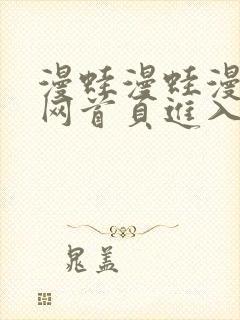 漫蛙漫蛙漫
网首页進入
晁盖